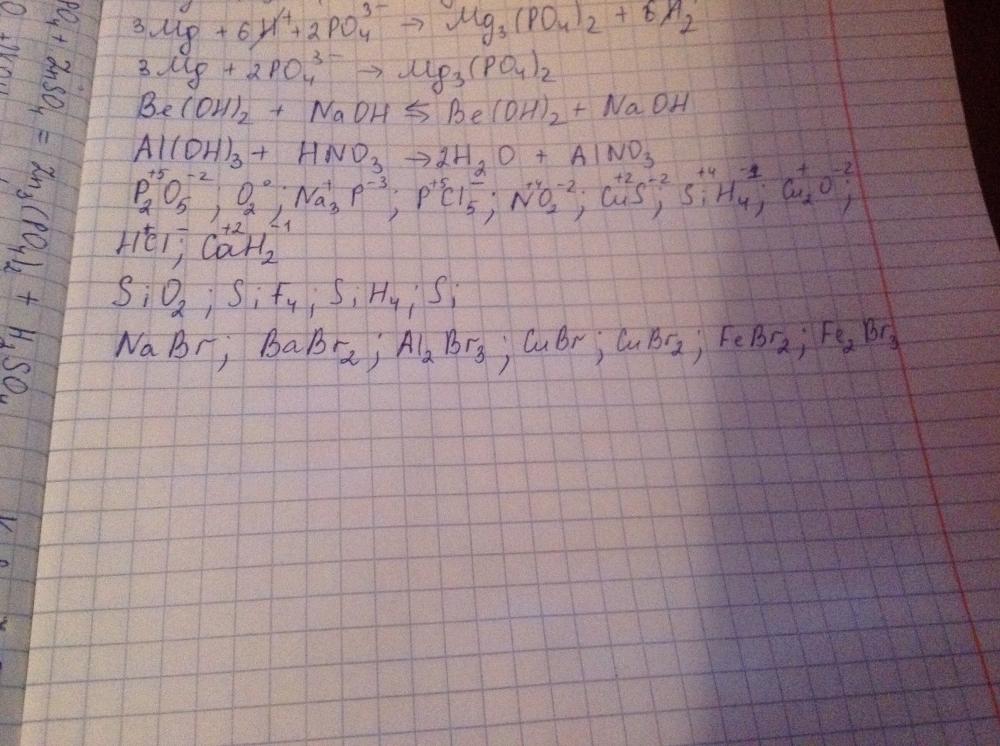 3Mg + 6H⁺ + 2PO₄³⁻ → Mg₃(PO₄)₂ + 6H₂
3Mg + 2PO₄³⁻ → Mg₃(PO₄)₂
Be(OH)₂ + NaOH ⇆ Be(OH)₂ + NaOH
Al(OH)₃ + HNO₃ → 2H₂O + AlNO₃
P₂⁺⁵O₅⁻²; O₂⁰; Na₃⁺P⁻³; P⁺⁵Cl₅⁻; N⁺⁴O₂⁻²; Cu⁺²S⁻²; Si⁺⁴H₄⁻¹; Cu₂⁺O⁻²;
H⁺Cl⁻; Ca⁺²H₂⁻¹
SiO₂; SiF₄; SiH₄; Si
NaBr; BaBr₂; Al₂Br₃; CuBr; CuBr₂; FeBr₂; Fe₂Br₃
PO₄ + ZnSO₄ = Zn₃(PO₄)₂ + H₂SO₄